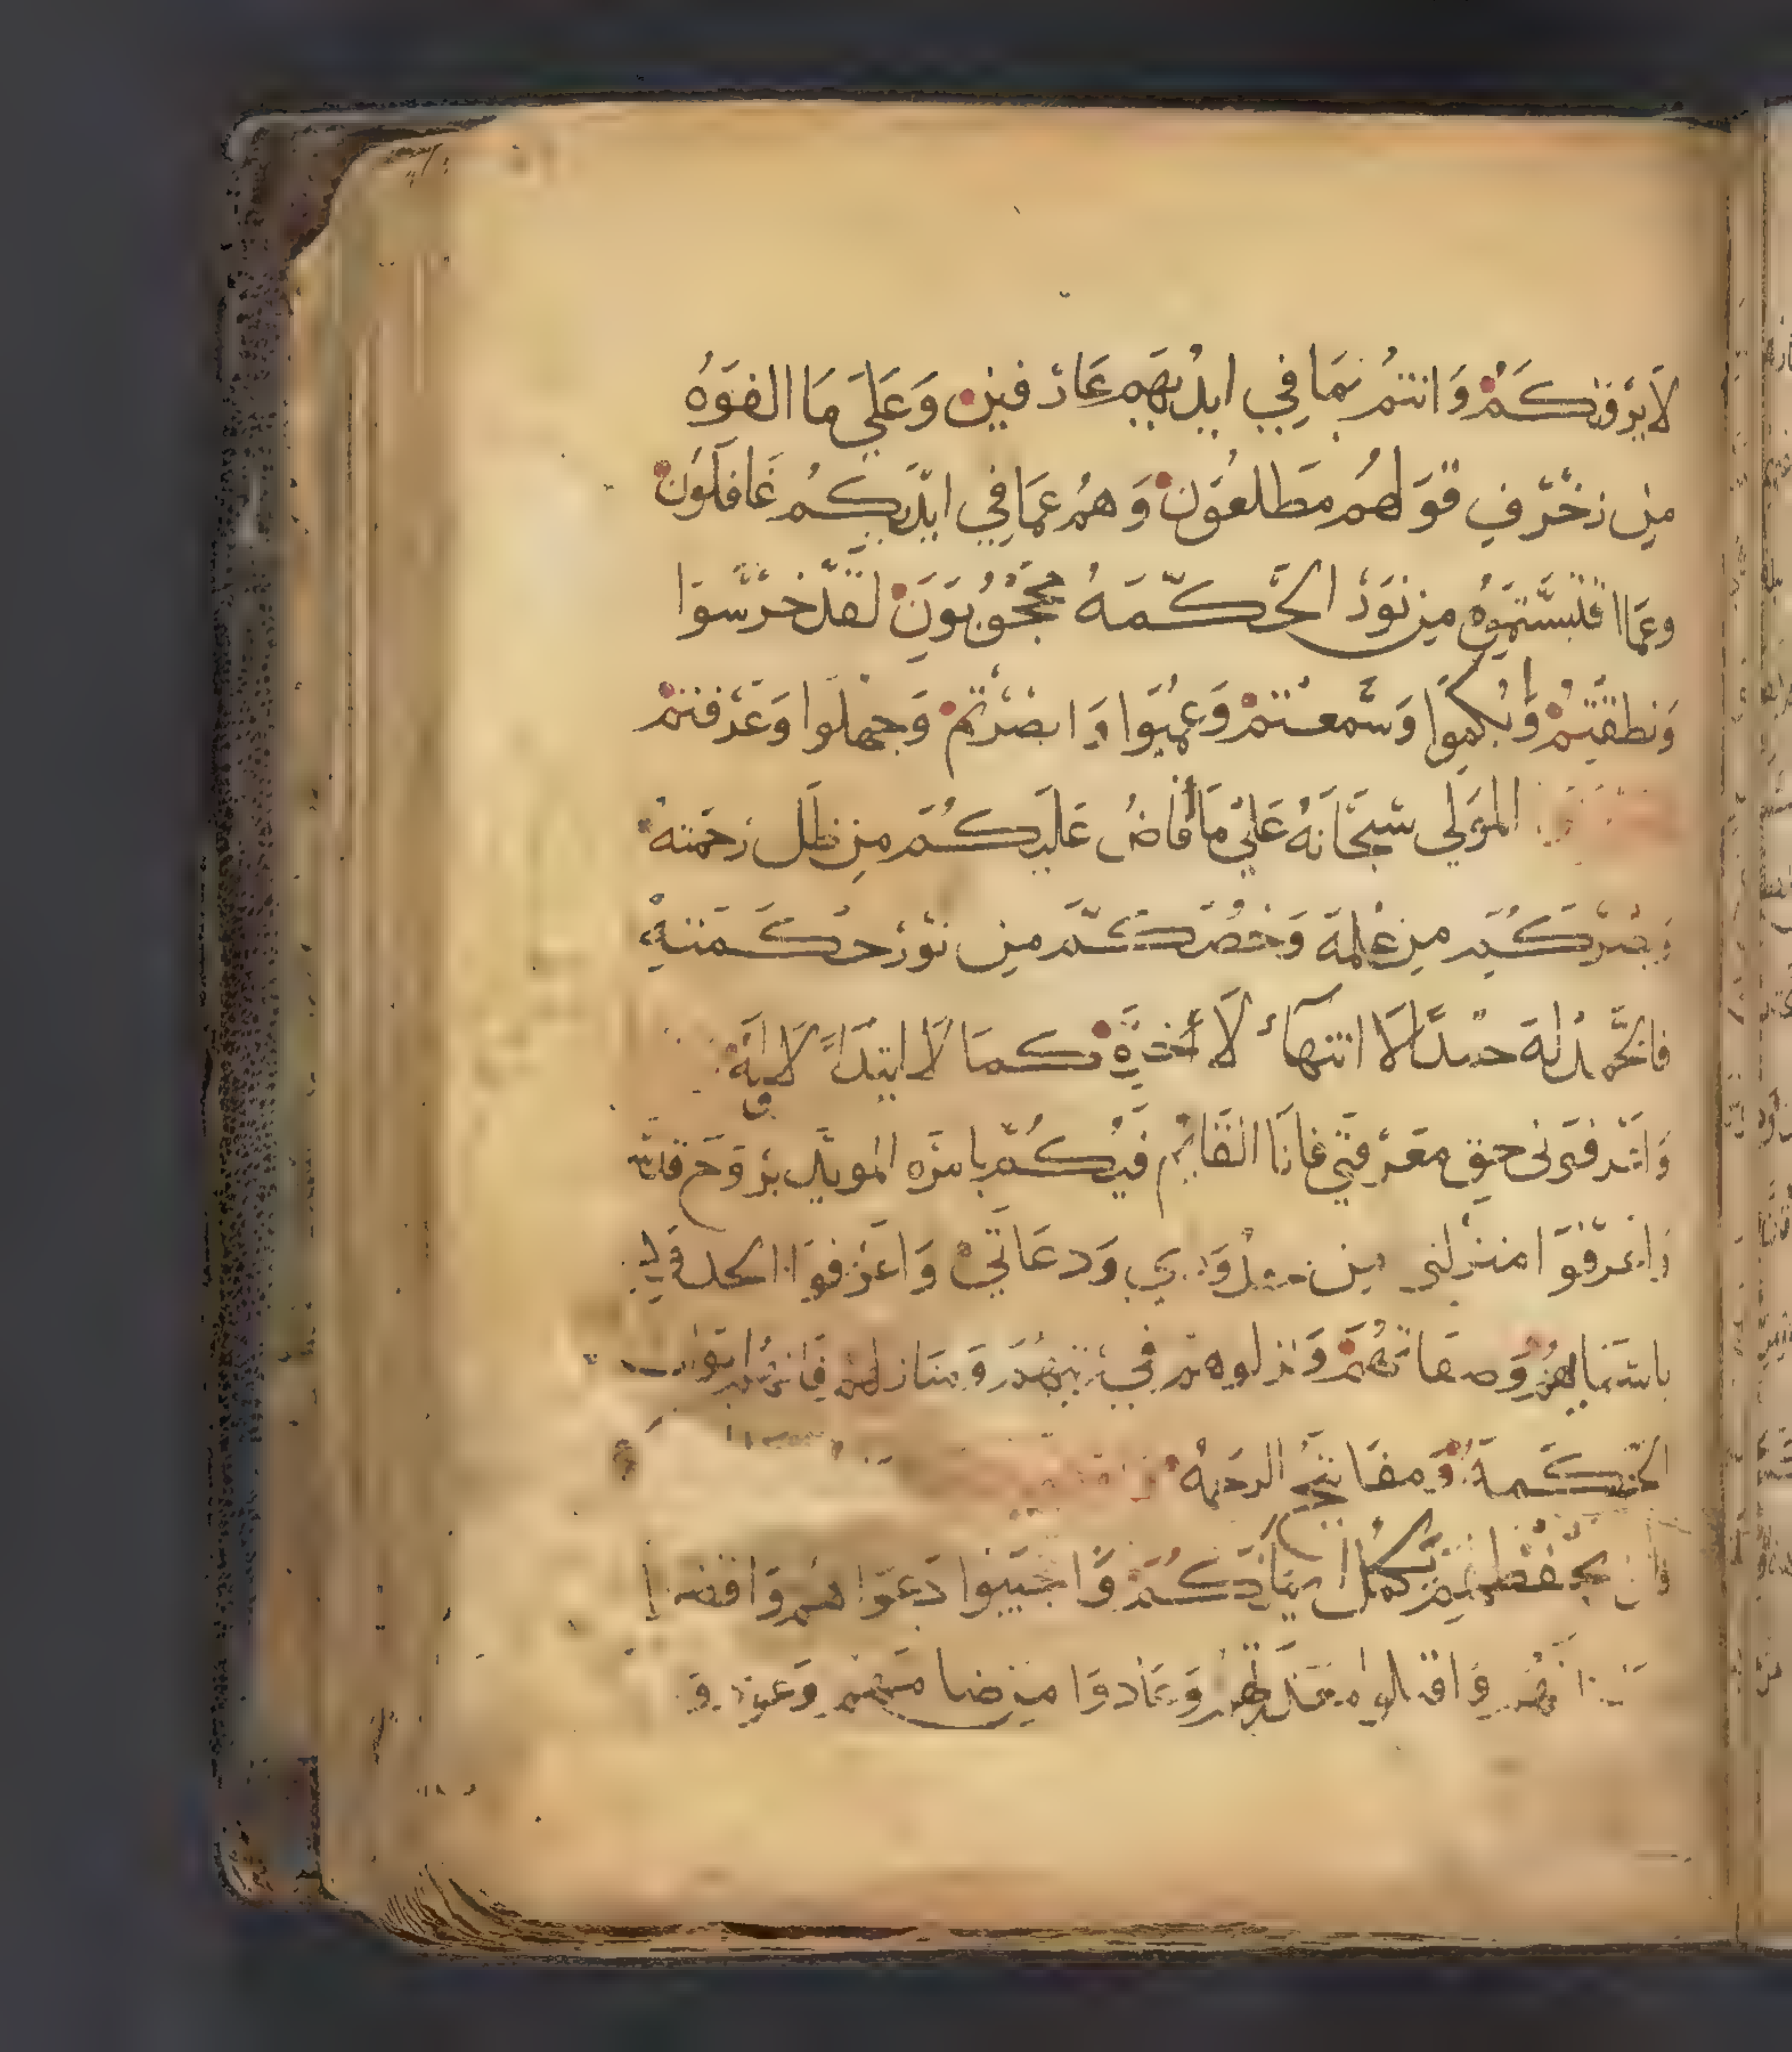 لَا يَرْمُقُكُمْ وَانتُمْ بِمَا فِي ايْدِيهِم عَارفين وَعَلَي مَا الفوَهُ
مِن زخْرفِ قوَلهُم مطَلعُوَن وَهُمْ عمَا فِي ايْدِيكُم غَافلوُن
وعمَا اقتبسْتمَوُه مِن نوَر الحْكمَهُ مححُوُبوَنَ لَقدْ خرسْوا
وَنطقتُمْ وَبُكموُا وَسَمعْتمْ وَعمُيَوا وَابصْرْتمْ وَجهلوُا وَعَرْفتمْ
الموَلي سُبحَانَهُ عَلي مَا أفاضُ عَليَكُمَ مِن ظلَل رَحمَته
وَبصَركُمَ مِن عْلمَهَ وَخصُكمَ مِن نوْر حكَمَتهِ
فالحْمدُ لهَ حمْداً لَا انتهاءْ لَا أخرِه كمَا لَا ابتدَاءً لَا وليَه
وَاعْرفوَني حَق معَرْفتي فانَا القَايمْ فيْكُمْ بامرَه الموَيدِ بروَح قدْسَه
وَاعرفوَا منزلتي مِن وَدعَاتي وَاعرَفوَا الحدوَد
باسمَايهمُ وَصفاتهُمْ وَنزلوهم في رتبهمَ وَمنازلهم فَانهُم ابوَاب
الحْكمَة وَمفَاتيح الرحمَهُ
وَان يحْفظ بكُمْ وَاجَيبوا دَعوَاهم وَاقضوا
وَاقبلوا معَذرتهُم وَعَادوَا مِن ضامَهْم وَعودوَ